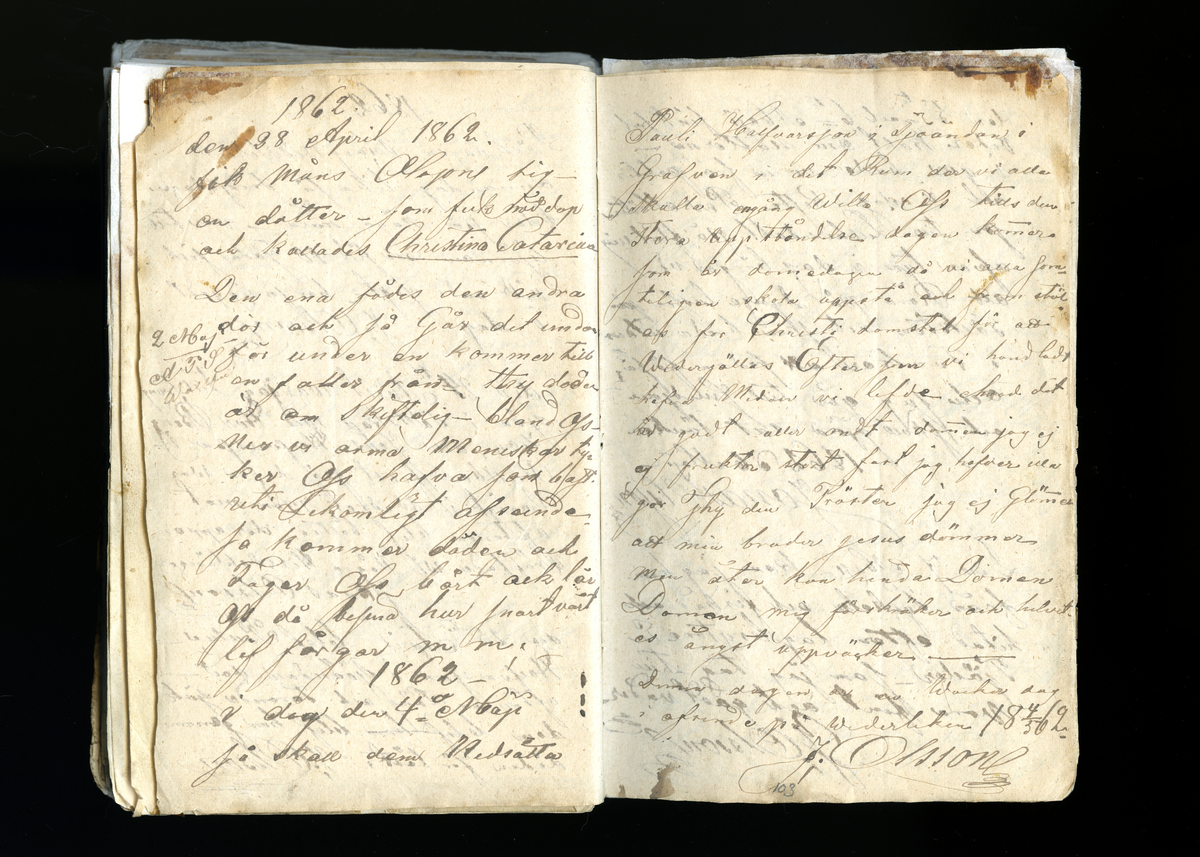 1862.
den 28 April 1862.
fik Måns Olsons sig
en dåtter – som fick nöddop
och kallades Christina Catarina
Den ena födes den andra
dör och så Går det undan
2 Maj
för under en kommer till
en faller från – thy döden
är en skiftelig – bland oss
Ner vi arma Meniskor ty-
ker oss hafva som bäst
Lekamligt afseende
så kommer döden och
Tager oss bårt och lär
oss då besina hur snart vårt
lif förgår m m.
1862 –
i dag den 4de Maj
så skall dem Nedsätta
Pauli Halfvarsson i Sjöändan i
Grafven i det Rum der vi alla
skulle engång Willa Oss tills den
stora uppståndelse dagen kommer
som är domedagen då vi alla sam-
teligen skola uppstå och fram stäl
as för Christi domstol för att
Wedergällas Efter som vi handladt
hafva Medan vi lefde ehvad det
är godt eller ondt domen jag ej
ej fruktar stort fast jag hafver illa
gior Thy den Tröster jag ej Glömer
att min broder jesus dömmer
Men åter kan hända Domen
Domen mig förskräker och helvet
es ångst uppväcker
Denna dagen är en Wacker dag
i afseende på Wäderleken 18 4/5 62
J. Olsson
103